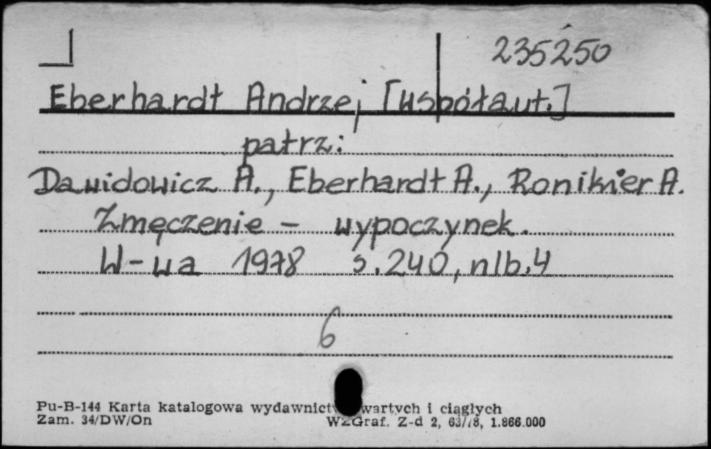 235250
Eberhardt Andrzej [współaut.]
patrz:
Dawidowicz A., Eberhardt A., Ronikier A.
Zmęczenie – wypoczynek.
W-wa 1978 s. 240, nlb. 4
6
Pu-B-144 Karta katalogowa wydawnictw zwartych i ciągłych
Zam. 34/DW/On WZGraf. Z-d 2, 1.866.000